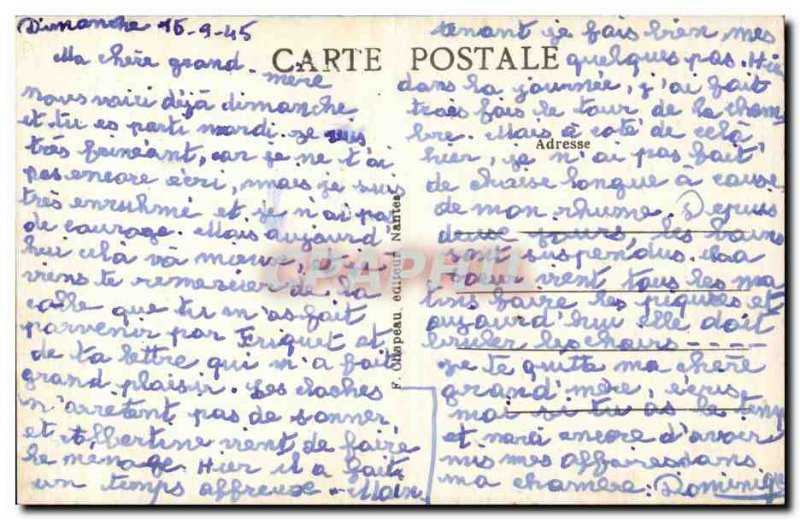 Dimanche 16-9-45
CARTE POSTALE
Ma chère grand-mère
nous voici déjà dimanche
et tu es parti mardi. Je suis
très fainéant, car je ne t'ai
pas encore écri, mais je suis
très enruhmé et je n'ai pas
de courage. Mais aujourd
hui celà va mieux, et je
viens te remercier de la
colle que tu m'as fait
parvenir par Friquet et
de ta lettre qui m'a fait
grand plaisir. Les cloches
n'arretent pas de sonner
et Albertine vient de faire
le ménage. Hier il a fait
un temps affreux. Main
tenant je fais bien mes
quelques pas. Hier
dans la journée, j'ai fait
trois fois le tour de la cham
bre. Mais à coté de celà
Adresse
hier, je n'ai pas fait
de chaise longue à cause
de mon rhume. Depuis
deux jours, les bains
sont suspendus.
vient tous les ma
tins faire les piqûres et
aujourd'hui elle doit
bruler les chairs - - - -
Je te quitte ma chère
grand'mère, écris
moi si tu as le temps
et merci encore d'avoir
mis mes affaires dans
ma chambre. Dominique
F. Chapeau, éditeur Nantes
CPAPHIL